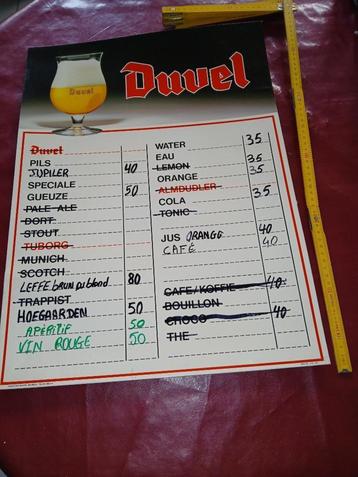 Duvel
Duvel
Duvel
PILS
JUPILER 40
SPECIALE
GUEUZE 50
PALE-ALE
DORT
STOUT
TUBORG
MUNICH
SCOTCH
LEFFE brun ou blond 80
TRAPPIST
HOEGAARDEN 50
APÉRITIF 50
VIN ROUGE 50
WATER 35
EAU
LEMON 35
ORANGE 35
ALMDUDLER
COLA 35
TONIC
JUS ORANGE 40
CAFÉ 40
CAFE/KOFFIE 40
BOUILLON
CHOCO 40
THE